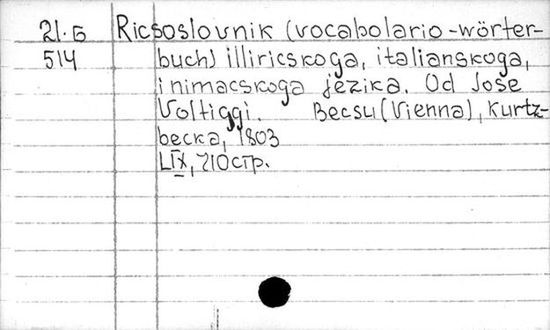 21.Б Ricsoslovnik (vocabolario-wörter-
514 buch) illiricskoga, italianskoga,
i nimacskoga jezika. Od Jose
Voltiggi. Becsu (Vienna), Kurtz-
becka, 1803
LIX, 710 стр.